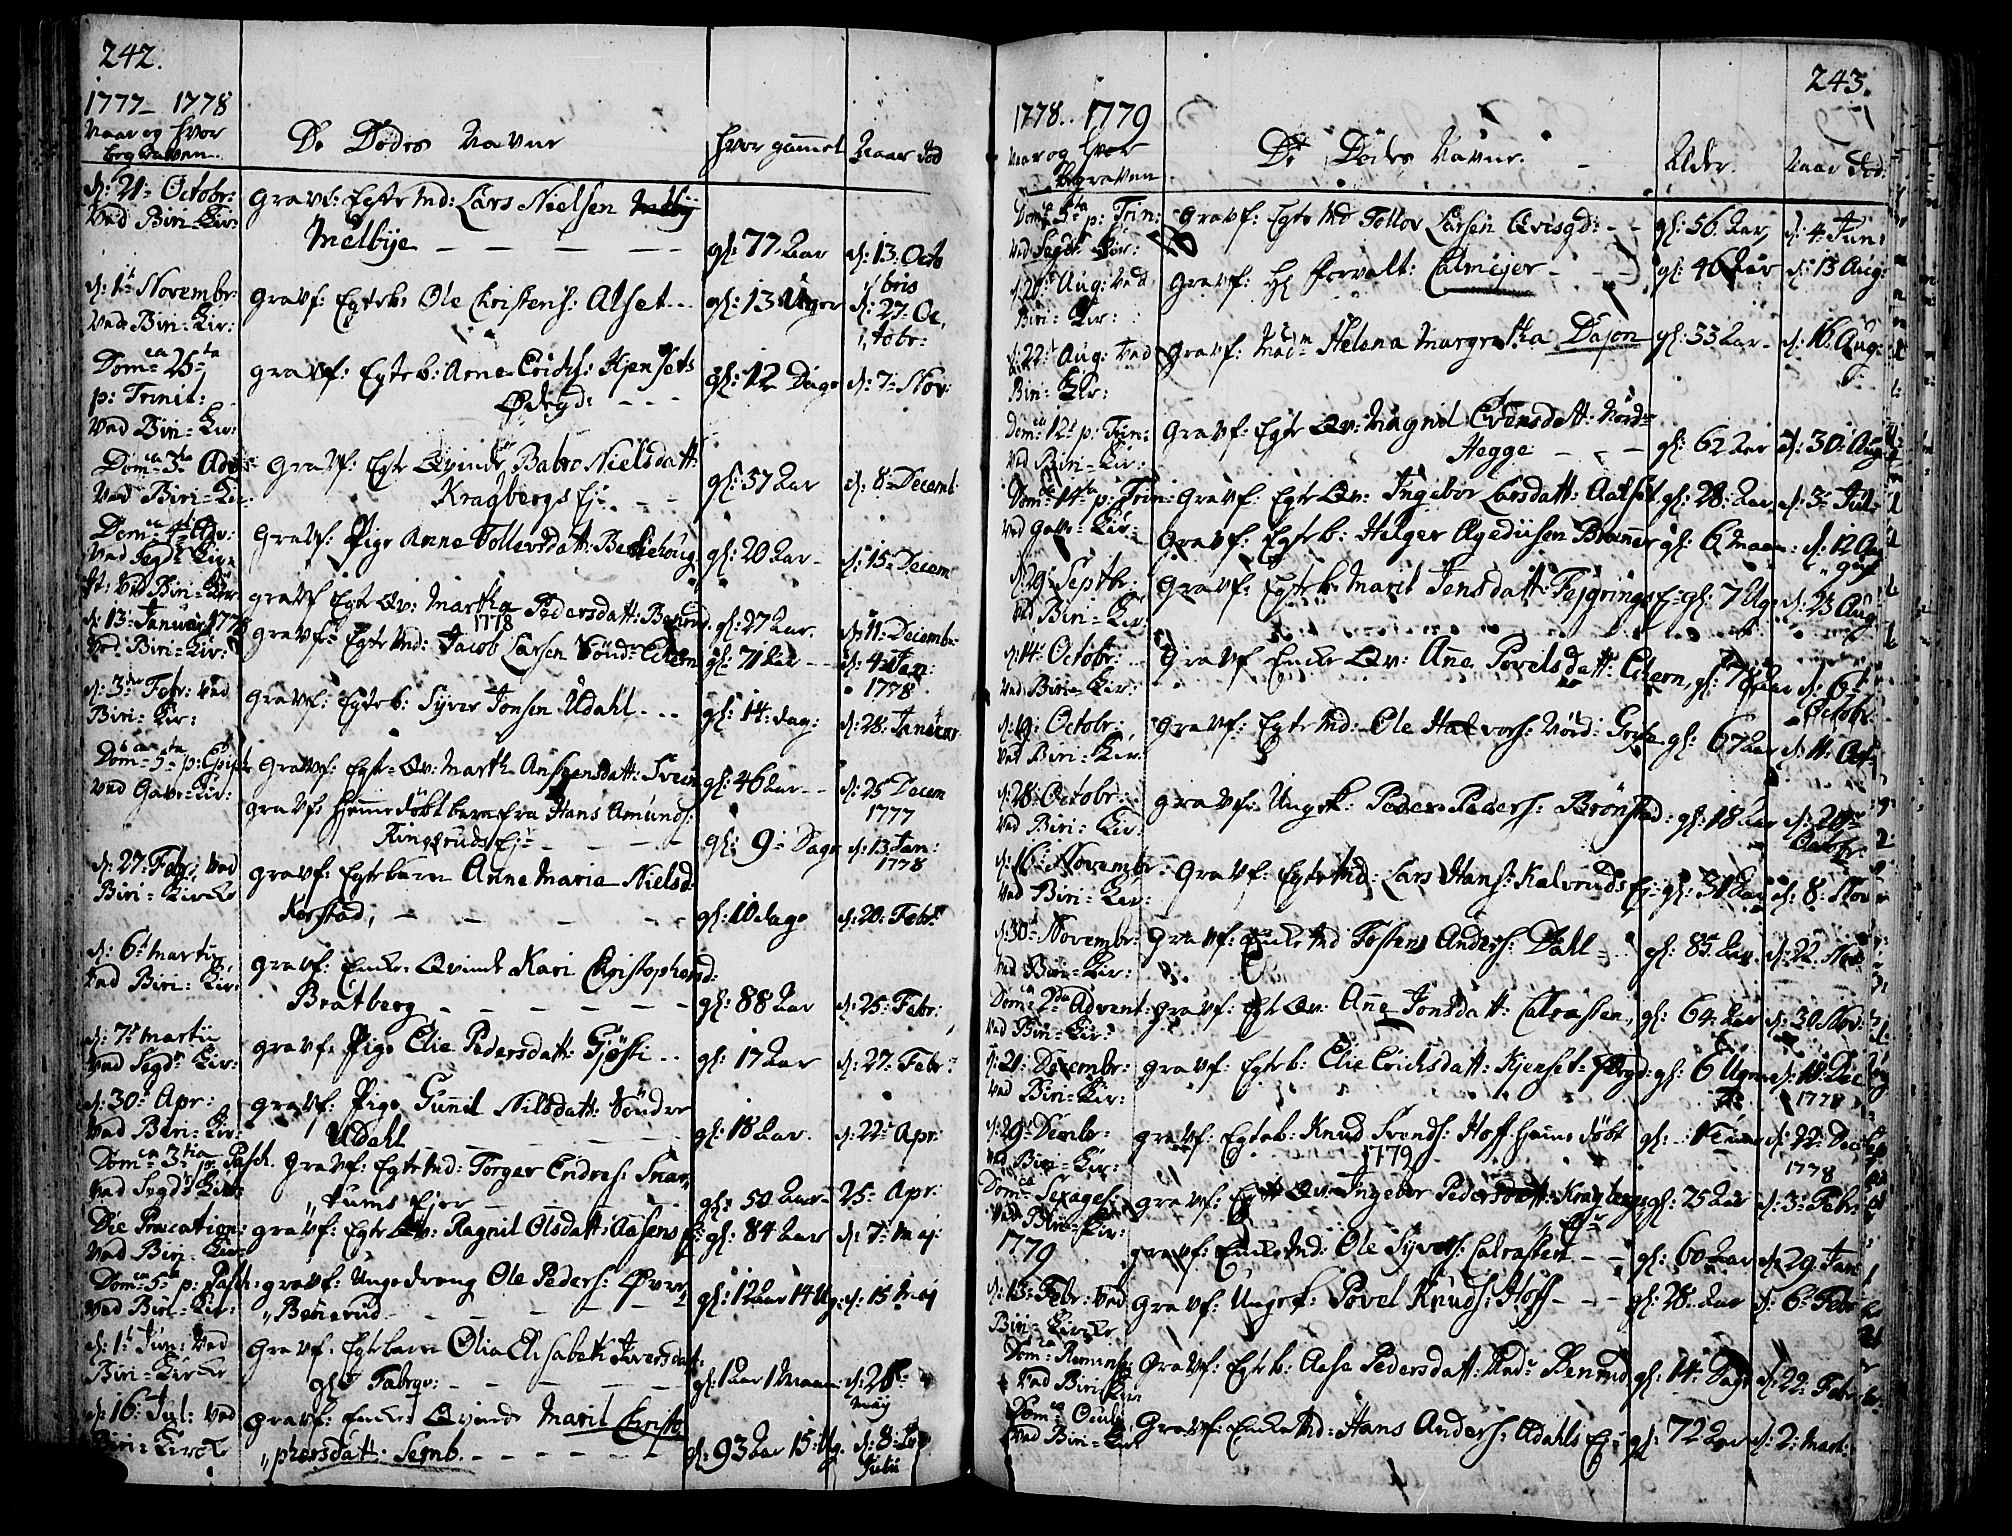 242.
1777 - 1778
Naar og hvor
begraven.
De Dödes Navne
hvor gammel
Naar död
d: 21 Octobr:
Ved Biri-Kir:
Gravf: Egte Md: Lars Nielsen
Melbye
gl: 77 Aar
d: 13 Octo
bris
d: 1 Novembr:
Ved Biri-Kir:
Gravf: Egteb: Ole Christens: Alset
gl: 13 Uger
d: 27 Oc,
tobr:
Dom: 25ta
p: Trinit:
Ved Biri-Kir:
Gravf: Egteb: Arne Erichs: Hjensets
Ødegd:
gl: 12 Dage
d: 7 Nov:
Dom: 3tia Adv:
Ved Biri-Kir:
Gravf: Egte Qvinde Babro Nielsdatt:
Kragbergs Ej:
gl: 57 Aar
d: 8 Decemb
Dom: 4ta Adv:
Ved Segd: Kir:
Gravf: Pige Anne Tollevsdatt:
gl: 20 Aar
d: 15 Decem
Ved Biri-Kir
Gravf Egte Qv: Martha Pedersdatt:
gl: 27 Aar
d: 11 Decembr
d: 13 Januar 1778
Ved Biri-Kir:
1778
Gravf: Egte Md: Jacob Larsen Sönd: Echern
gl: 71 Aar
d: 4 Jan:
1778
d: 3 Febr: Ved
Biri-Kir:
Gravf: Egteb: Syver Jonsen Udahl
gl: 14 dag:
d: 28 Januar
Dom: 5ta p: Epiph
Ved Gav: Kir:
Gravf: Egte Qv: Marthe Ansteensdatt:
gl: 46 Aar
d: 25 Decem
1777
Gravf: hiemedöbt barn fra Hans Amunds:
Ringsruds Ej:
gl: 9 Dage
d: 13 Jan:
1778
d: 27 Febr: Ved
Biri-Kirche
Gravf: Egtebarn Anne Maria Nielsd:
Kørstad,
gl: 10 dage
d: 20 Febr
d: 6 Martii
Ved Biri-Kir:
Gravf: Enche Qvinde Kari Christophersd:
Bratberg
gl: 88 Aar
d: 25 Febr:
d: 7 Martii
Ved Segd: Kir:
Gravf: Pige Elie Pedersdatt: Gjøsti
gl: 17 Aar
d: 27 Febr:
d: 30 Apr:
Ved Biri-Kir:
Gravf: Pige Gunnil Nilsdatt: Söndre
Udahl
gl: 18 Aar
d: 22 Apr:
Dom: 3tia p: Pasch.
Ved Segd: Kir:
Gravf: Egte Md: Torger Endres: Snar,
tums Ejer
gl: 50 Aar
25 Apr:
Die Precation:
Ved Biri-Kir:
Gravf: Egte Qv: Ragnil Olsdatt: Aasens Ej:
gl: 84 Aar
d: 7 Maj:
Dom: 5ta p: Pasch:
Ved Biri-Kir:
Gravf: Ungedreng Ole Peders: Øvre
gl: 12 Aar 14 Ug:
d: 15 Maj
d: 1 Jun: Ved
Biri-Kirche
Gravf: Egtebarn Olia Elisabeth Iversdatt:
gl: 1 Aar 1 Maan
d: 26
May
d: 16 Jul: Ved
Biri-Kirche
Gravf: Enche Qvinde Marit Christo
phersdatt: Semb.
gl: 93 Aar 15 Ug.
d: 8
Julii
243.
1778.. 1779
Naar og hvor
begraven
De Dödes Navne.
Alder.
Naar Död:
Dom: 5ta p: Trin:
Ved Segd: Kir:
Gravf: Egte Md Tollov Larsen Qvisgd:
gl: 56 Aar,
d: 4 Jun:
d: 20 Aug: Ved
Biri-Kir:
Gravf: Hr Forvalt: Calmejer
gl: 46 Aar
d: 13 Aug:
d: 22 Aug: Ved
Biri-Kir:
Gravf: Mad: Helena Margretha Dajon
gl: 33 Aar
d: 16 Aug:
Dom: 12 p: Trin:
Ved Biri-Kir:
Gravf: Egte Qv: Magnil Evensdatt: Nord
Hegge
gl: 62 Aar
d: 30 Aug
Dom: 14 p: Trin:
Ved Gav: Kir:
Gravf: Egte Qv: Ingebor Larsdatt: Aalset
gl: 28 Aar,
d: 3 Jul:
Gravf: Egteb: Helger Ægediisen
gl: 6 Maan:
d: 12 Aug
d: 29 Septbr:
Ved Biri-Kir:
Gravf: Egteb: Marit Jensdatt:
gl: 7 Uge
d: 23 Aug
d: 14 Octobr:
Ved Biri-Kir:
Gravf Enche Qv: Anne Povelsdatt: Echern,
gl: 78 Aar
d: 6
Octobr.
d: 19 Octobr:
Ved Biri-Kir:
Gravf: Egte Md: Ole Halvors: Nord:
gl: 67 Aar
d: 11 Oct
d: 28 Octobr:
Ved Biri-Kir:
Gravf: Ungek: Peder Peders: Brönstad:
gl: 18 Aar
d: 20
Octobr:
d: 16 Novembr
Ved Biri-Kir:
Gravf: Egte Md: Lars Hans: Kalruds Ej:
gl: 31 Aar
d: 8 Nov
d: 30 Novembr:
Ved Biri-Kir:
Gravf: Enche Md Tosten Anders: Dahl
gl: 85 Aar
d: 22 Nov
Dom: 2da Advent:
Ved Biri-Kir:
Gravf: Egte Qv: Anne Jonsdatt: Calrasten,
gl: 64 Aar
d: 30 Nov:
d: 21 Decembr:
Ved Biri-Kir:
Gravf: Egteb: Elie Erichsdatt: Kjenset
gl: 6 Ugr
d: 10 Dec
1778
d: 29 Decbr:
Ved Biri-Kir:
Gravf: Egteb: Knud Svends: Hoff hiemedöbt
d: 22 Dec
1778
1779
Dom: Sexages:
Ved Biri-Kir:
Gravf: Egte Qv: Ingebor Pedersdatt: Kragbergs
Ej:
gl: 25 Aar
d: 3 Febr:
1779
Gravf: Enche Md: Ole Syvers: Calrasten
gl: 60 Aar
d: 29 Jan
d: 13 Febr: Ved
Biri-Kirche
Gravf: Ungek: Povel Knuds: Hoff
gl: 28 Aar
d: 6 Febr
Dom: Remin:
Ved Biri Kir
Gravf: Egteb: Aase Pedersdatt:
gl: 14 Dage
d: 22 Febr
Dom: Oculi
Ved Biri-Kir
Gravf: Enche Md: Hans Anders: Adahls Ej:
gl: 72 Aar
d: 2 Mart: